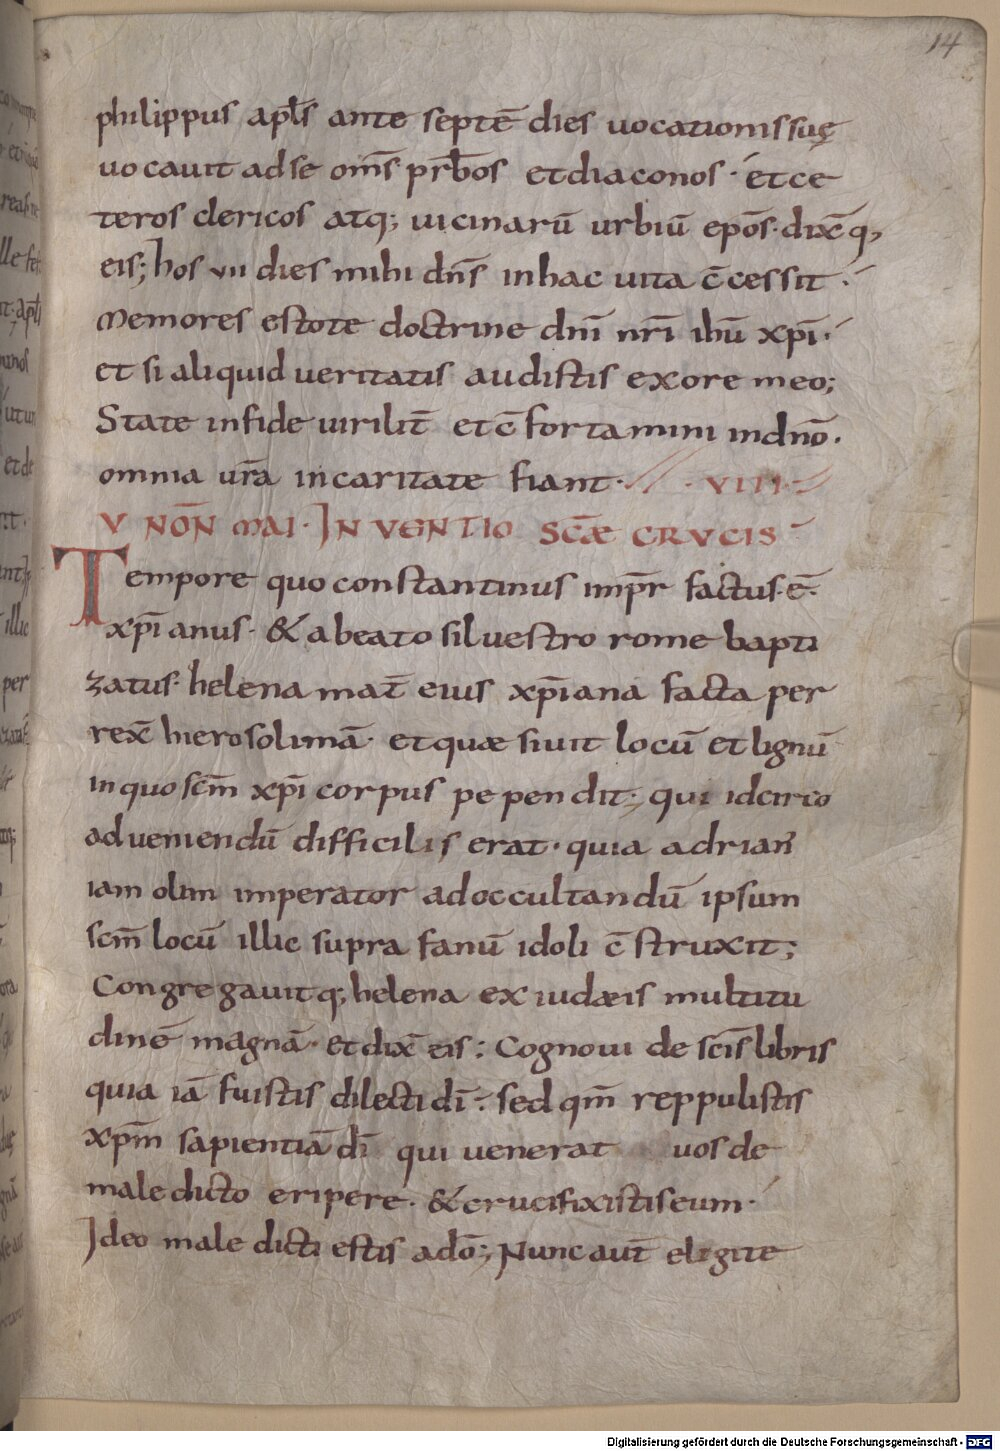 14
philippus apłs ante septē dies uocationis suę
uocauit ad se om̄s prb̄os et diaconos · et ce
teros clericos atq; uicinarū urbiū ep̄os · dix̄ q;
eis; hos vii dies mihi dn̄s in hac uita c̄cessit ·
Memores estote doctrine dn̄i nr̄i ihū xp̄i ·
et si aliquid ueritatis audistis ex ore meo;
State in fide uirilit̄ et c̄fortamini in dn̄o ·
omnia ur̄a in caritate fiant · VIIII ·
V NŌN MAI · INVENTIO SC̄Æ CRVCIS
Tempore quo constantinus imp̄r factus · ē ·
xp̄ianus · & a beato siluestro rome bapti
zatus · helena mat̄ eius xp̄iana facta per
rex̄ hierosolimā · et quæsiuit locū et lignū
in quo sc̄m xp̄i corpus pependit; qui idcirco
ad ueniendū difficilis erat · quia adrian'
iam olim imperator ad occultandū ipsum
sc̄m locū illic supra fanū idoli c̄struxit;
Congregauitq; helena ex iudæis multitu
dinē magnā · et dix̄ eis : Cognoui de sc̄is libris
quia iā fuistis dilecti dī : sed qm̄ reppulistis
xp̄m sapientiā dī qui uenerat uos de
maledicto eripere · & crucifixistis eum ·
Ideo maledicti estis a dō; Nunc aut̄ eligite
Digitalisierung gefördert durch die Deutsche Forschungsgemeinschaft - DFG